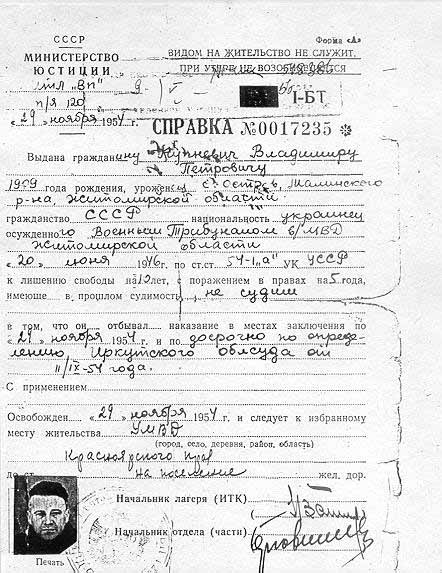 СССР
Форма «А»
МИНИСТЕРСТВО
ЮСТИЦИИ
ВИДОМ НА ЖИТЕЛЬСТВО НЕ СЛУЖИТ,
ПРИ УТЕРЕ НЕ ВОЗОБНОВЛЯЕТСЯ
п/я 120
I-БТ
«29» ноября 1954 г.
СПРАВКА №0017235 ✻
Выдана гражданину Владимиру
Петровичу
1909 года рождения, урожен с. р-на, Житомирской области
гражданство СССР национальность украинец
осужденного Военным Трибуналом в/МВД
Житомирской области
«20» июня 1946 г. по ст.ст 54-1 „а" УК УССР
к лишению свободы на 10 лет, с поражением в правах на 5 года,
имеюще в прошлом судимость не судим
в том, что он отбывал наказание в местах заключения по
«29» ноября 1954 г. и по досрочно по опреде-
лению, Иркутского облсуда от
11/IX-54 года.
С применением
Освобожден «29» ноября 1954 г. и следует к избранному
месту жительства УМВД
(город, село, деревня, район, область)
Красноярского края
до ст. на поселение жел. дор.
Начальник лагеря (ИТК)
Начальник отдела (части)
Печать